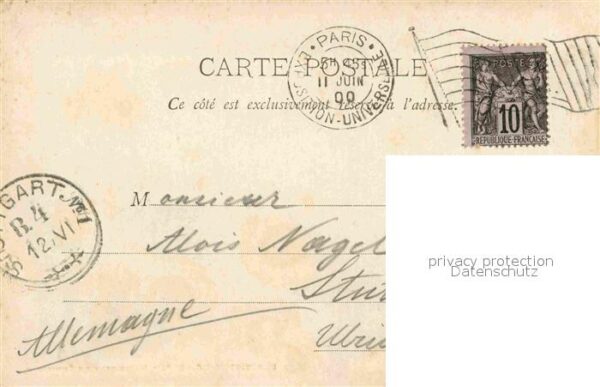 PARIS
EXPOSITION-UNIVERSELLE
11 JUIN
POSTE
10
REPUBLIQUE FRANÇAISE
CARTE POSTALE
Ce côté est exclusivement réservé à l'adresse.
STUTTGART No 1
B.4
12.VI
Monsieur
Alois Nagel
privacy protection
Datenschutz
Stu
Allemagne
Ulri